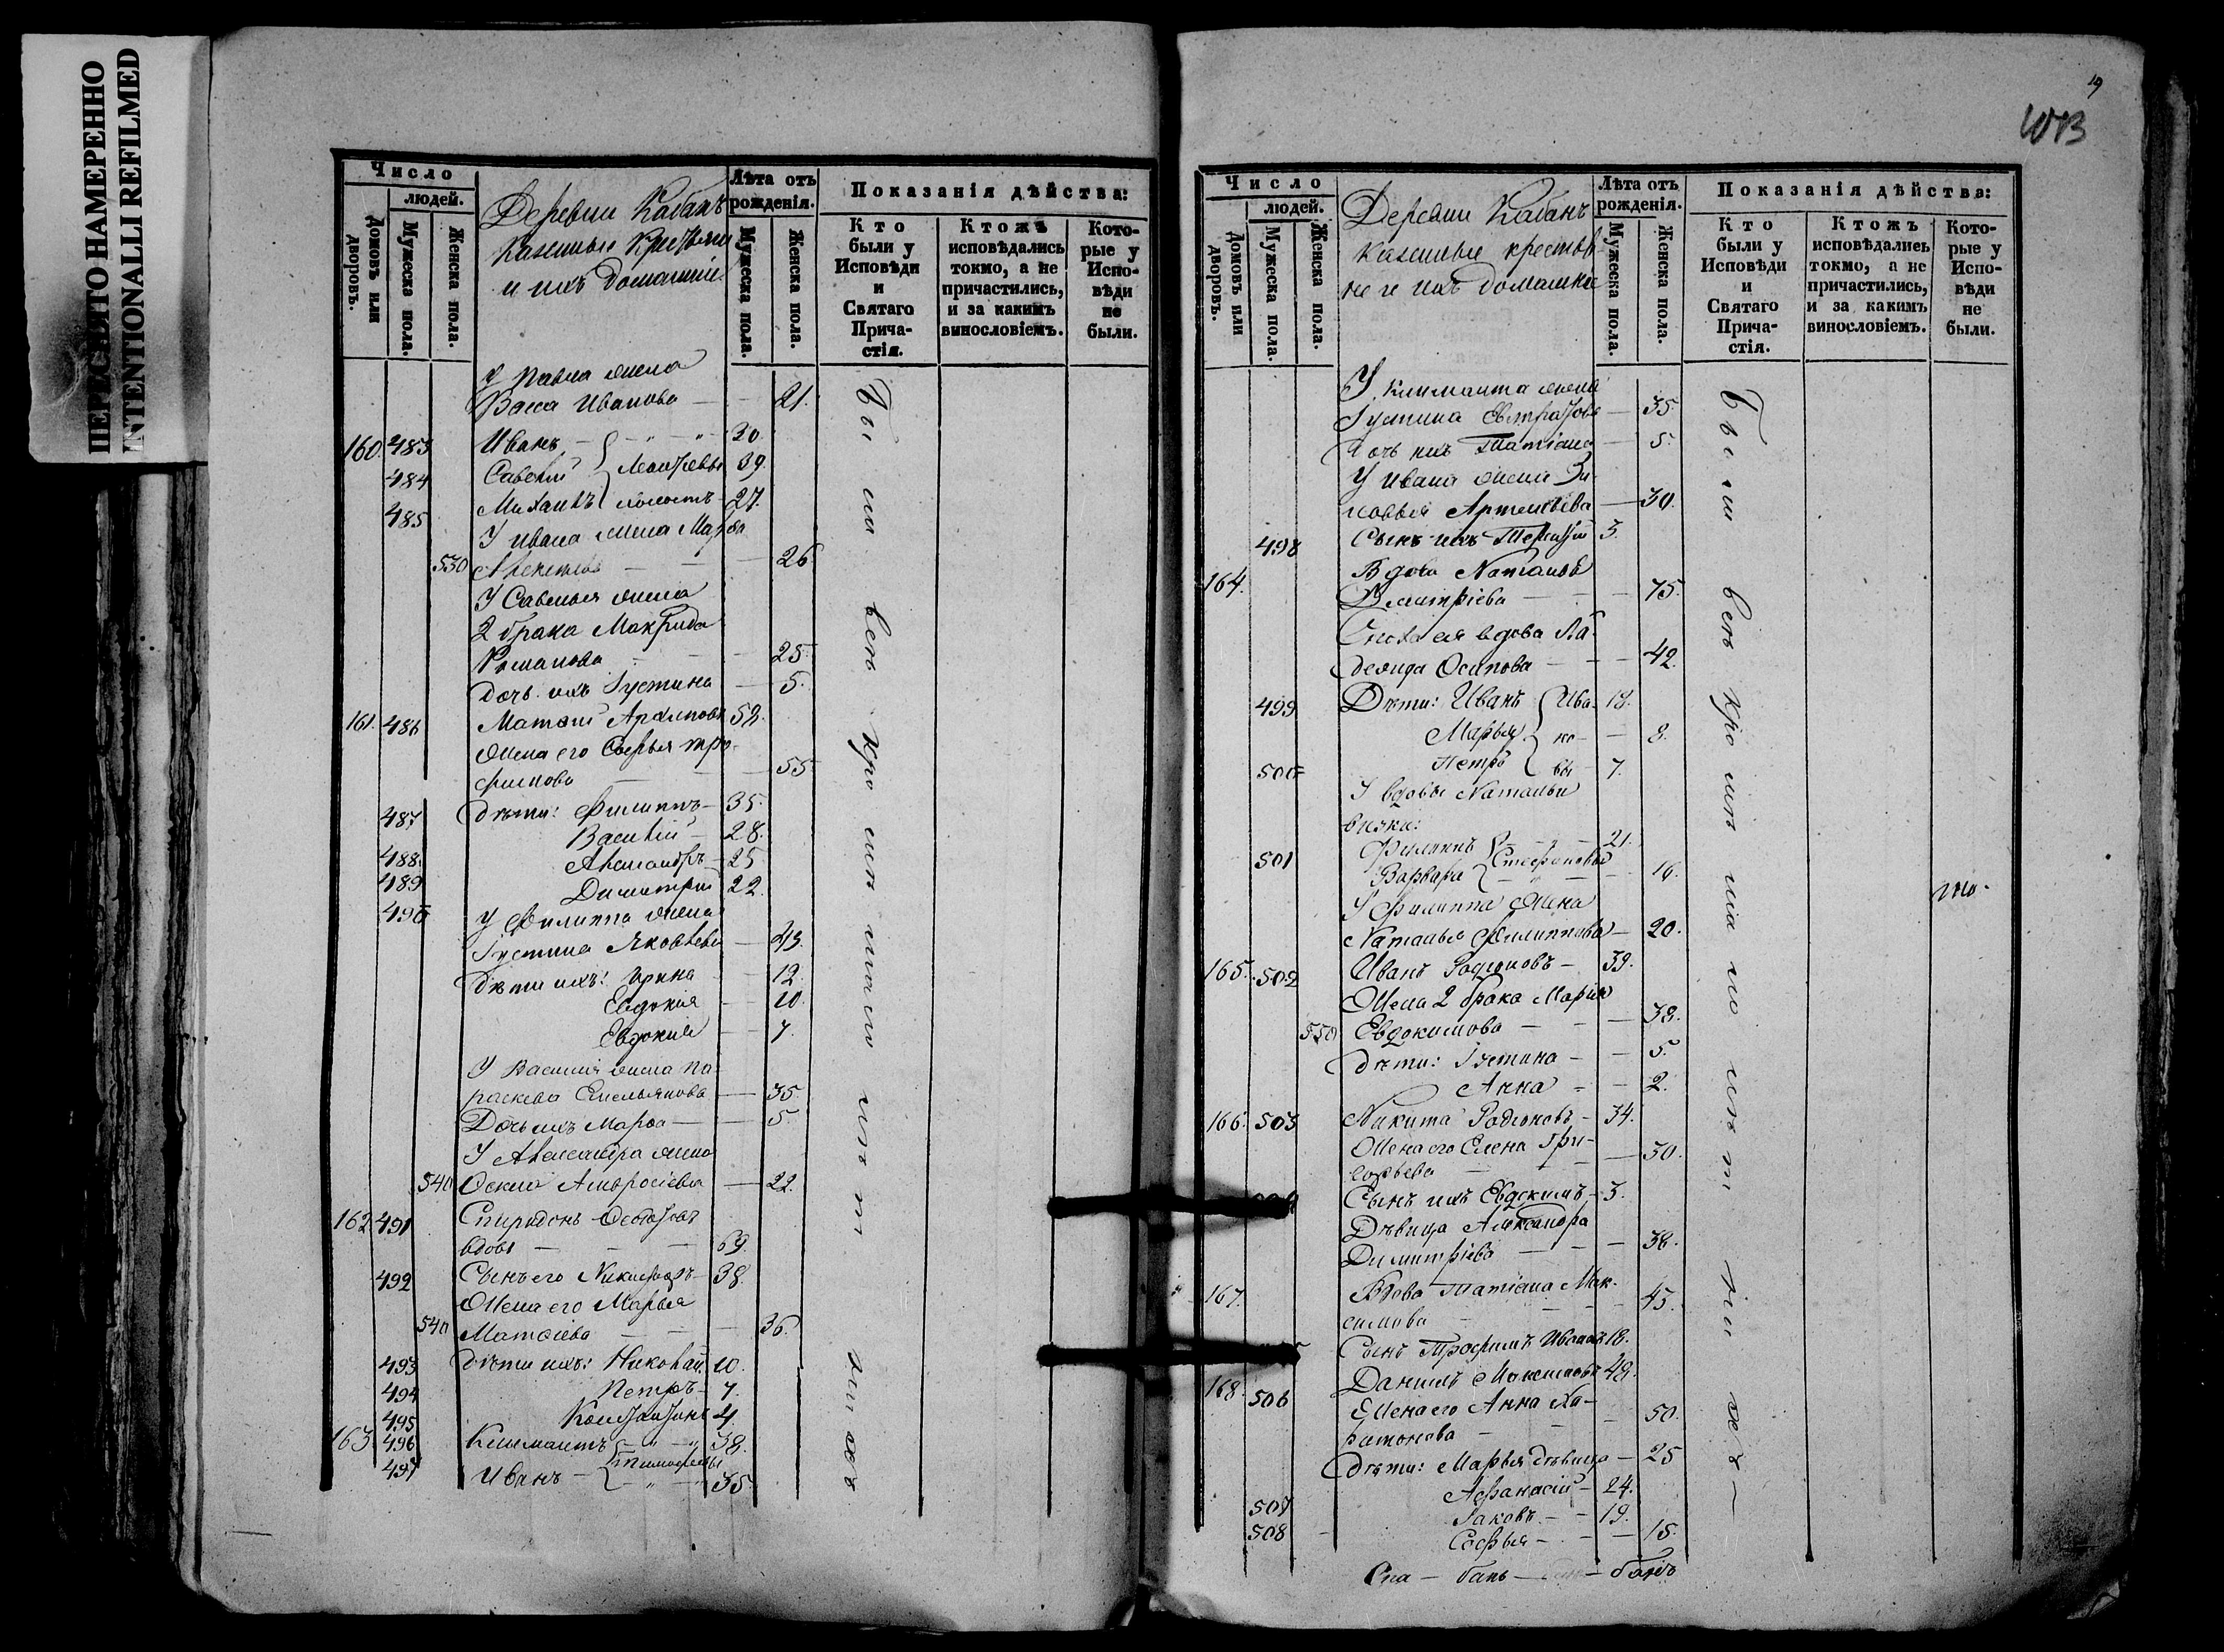 ПЕРЕСНЯТО НАМЕРЕННО
INTENTIONALLI REFILMED
Число
людей.
Домовъ или дворовъ.
Мужеска пола.
Женска пола.
Деревни Кабанъ
Казенные Крестьяне
и ихъ домашніе
Лѣта отъ рожденія.
Мужеска пола.
Женска пола.
Показанія дѣйства:
Кто были у Исповѣди и Святаго Прича-стія.
Ктожъ исповѣдались токмо, а не причастились, и за какимъ винословіемъ.
Кото-рые у Испо-вѣди не были.
У Павла жена
Васса Иванова — 21.
160. 483 Иванъ 30.
484 Савелій 39.
485 Михаилъ 27.
У Ивана жена Марѳа
530 26
У Савелья жена
2 брака Макрида
Романова 25.
дочь ихъ Іустина — 5.
161. 486 Матѳій Архиповъ 52.
Жена его Софья Тро-
фимова — 55
487 Дѣти: Филиппъ — 35.
Василій — 28.
488. Александръ — 25
489 Димитрій 22.
490 У Филиппа жена
Іустина Яковлева — 43.
Дѣти ихъ: Ирина 12.
Евдокія 10.
Евдокія — 7.
У Василія жена Па-
раскева Емельянова — 35.
Дочь ихъ Марѳа — 5.
У Александра жена
540 Амвросіева — 22.
162. 491 Спиридонъ
вдовъ — 69.
492 Сынъ его Никифоръ — 38.
Жена его Марья
540 Матѳіева — 36.
493 Дѣти ихъ: Николай 10.
494 Петръ — 7.
495 Константинъ 4.
163. 496 Климантъ 38.
Тимофеевы
497 Иванъ — 35.
19
Число
людей.
Домовъ или дворовъ.
Мужеска пола.
Женска пола.
Деревни Кабанъ
Казенные крестья-
не и ихъ домашніе
Лѣта отъ рожденія.
Мужеска пола.
Женска пола.
Показанія дѣйства:
Кто были у Исповѣди и Святаго Прича-стія.
Ктожъ исповѣдались токмо, а не причастились, и за какимъ винословіемъ.
Кото-рые у Испо-вѣди не были.
У Климанта жена
Іустина Евстратова — 35.
Дочь ихъ Татіана — 5.
У Ивана жена Зи-
новья Артемьева — 30.
498 Сынъ ихъ 3.
164. Вдова Наталья
Димитріева — 75.
Сноха ея вдова Ла-
Осипова — 42.
499 Дѣти: Иванъ Ива- 18.
Марья но- — 8.
500 Петръ вы 7.
У вдовы Натальи
внуки:
501 Филиппъ 21.
Варвара Стефановы 16.
У Филиппа жена
Наталья Филиппова — 20.
165. 502 Иванъ Родіоновъ — 39.
Жена 2 брака Марія
550 Евдокимова — 38.
Дѣти: Іустина — 5.
Анна — 2.
166. 503 Никита Родіоновъ — 34.
Жена его Елена Гри-
горьева — 30.
Сынъ ихъ Евдокимъ — 3.
Дѣвица Александра
Димитріева — 38.
167. Вдова Татіана Мак-
симова — 45.
Сынъ Трофимъ Ивановъ 18.
168. 506 Даніилъ Максимовъ 48.
Жена его Анна Ха-
ритонова — 50.
Дѣти: Марья дѣвица — 25
507 Афанасій — 24.
508 Іаковъ — 19.
Софья — 15.